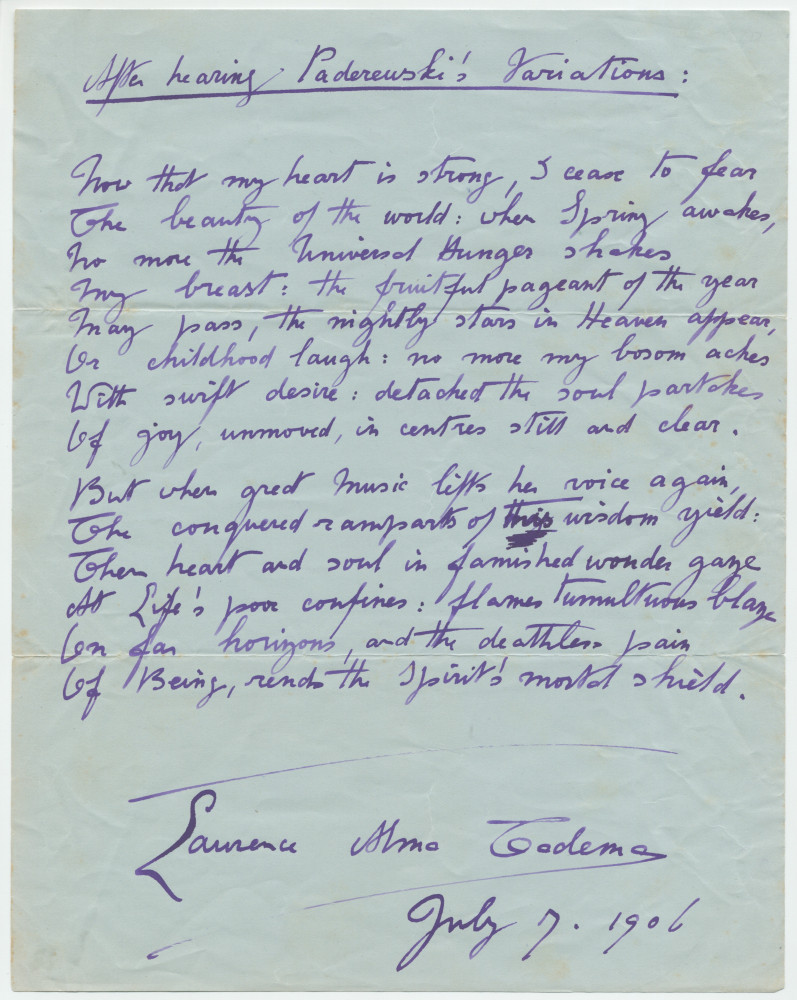 After hearing Paderewski's Variations:
Now that my heart is strong, I cease to fear
The beauty of the world: when Spring awakes,
No more the Universal Hunger shakes
My breast: the fruitful pageant of the year
May pass, the nightly stars in Heaven appear,
Or childhood laugh: no more my bosom aches
With swift desire: detached the soul partakes
Of joy, unmoved, in centres still and clear.
But when great Music lifts her voice again,
The conquered ramparts of this wisdom yield:
Then heart and soul in famished wonder gaze
At Life's poor confines: flames tumultuous blaze
On far horizons, and the deathless pain
Of Being, rends the Spirit's mortal shield.
Laurence Alma Tadema
July 7. 1906